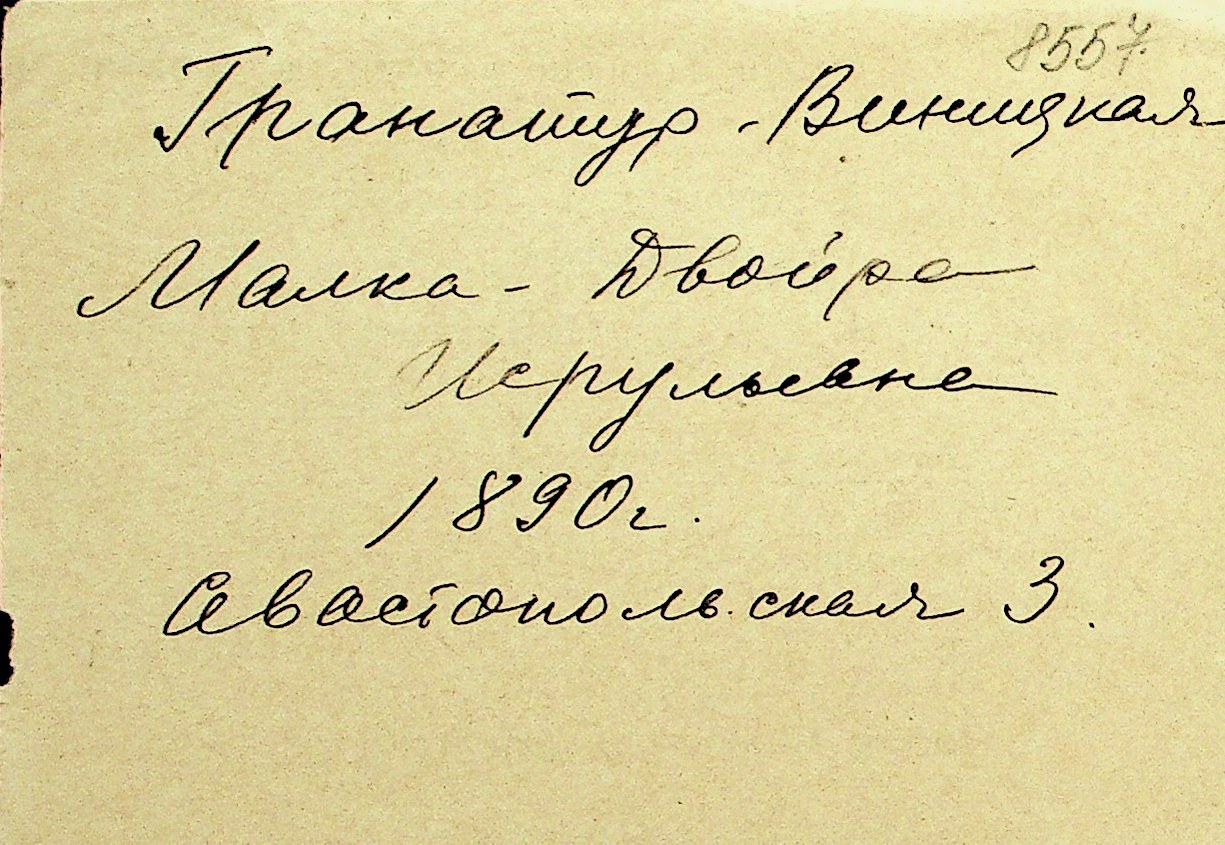 8557.
Гранатур - Виницкая
Малка - Двойра
Исрульевна
1890г.
Севастопольская 3.